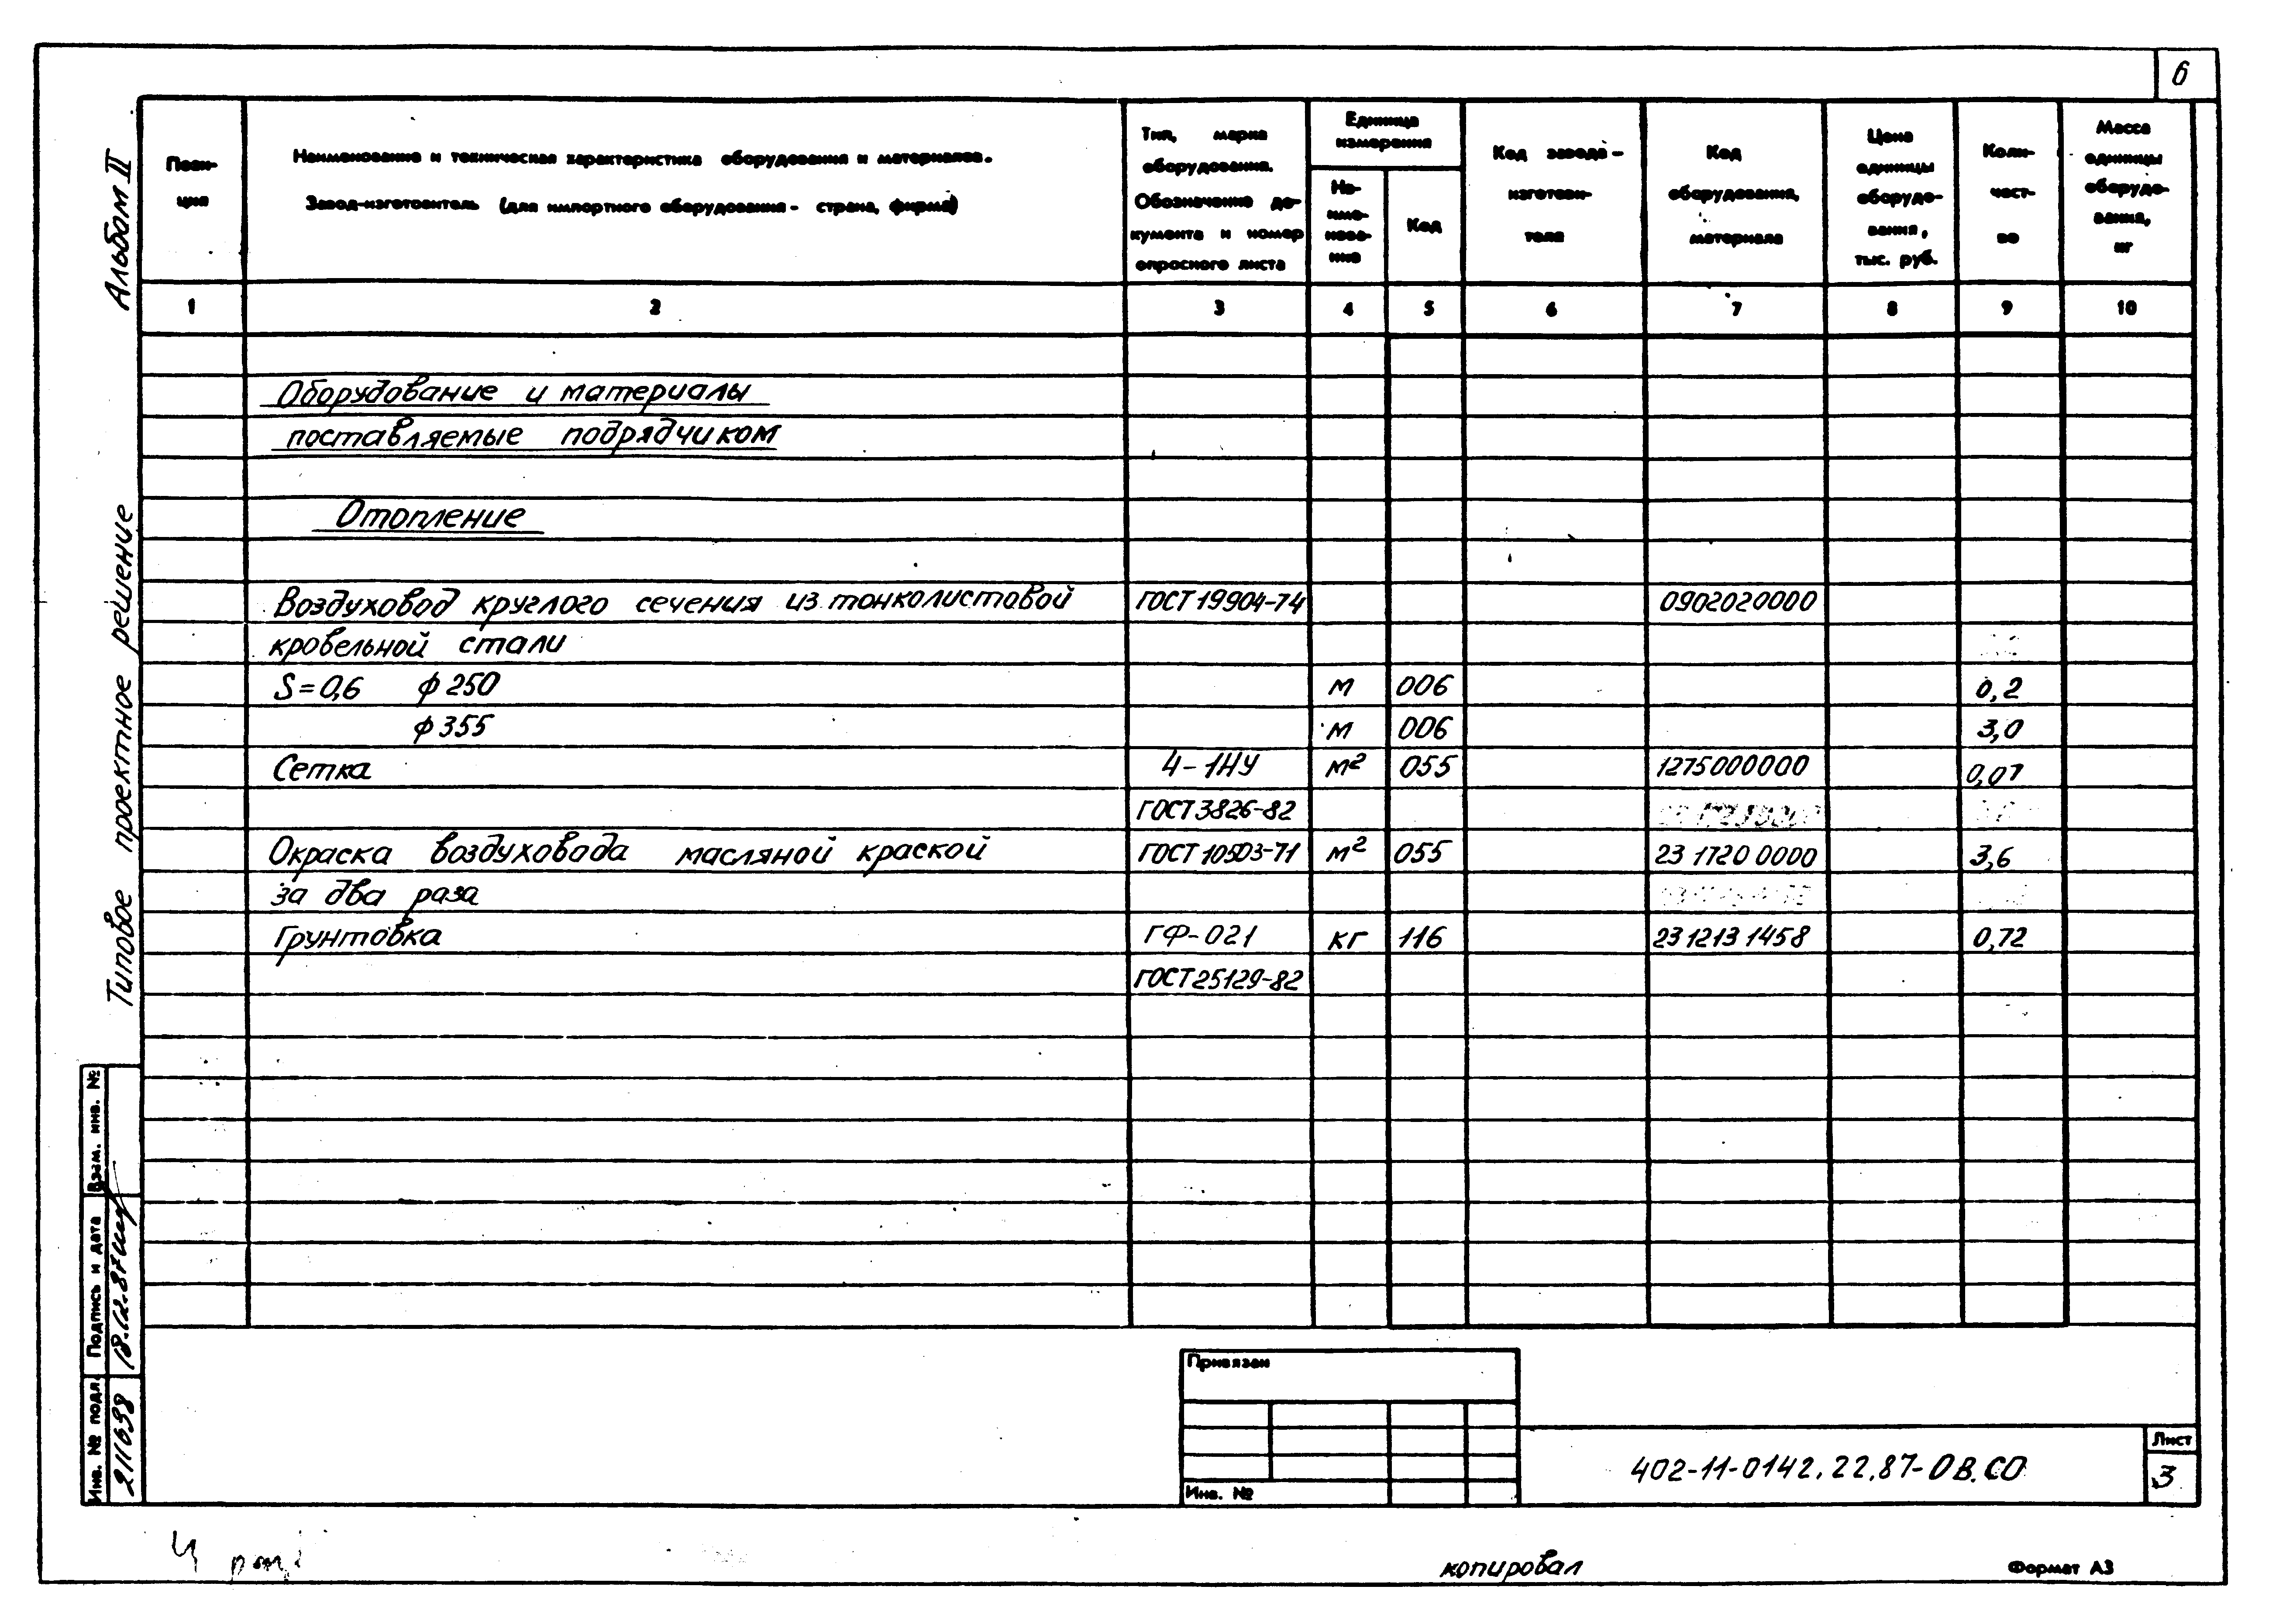 6
Альбом II
Типовое проектное решение
Пози-
ция
Наименование и техническая характеристика оборудования и материалов.
Завод-изготовитель (для импортного оборудования - страна, фирма)
Тип, марка
оборудования.
Обозначение до-
кумента и номер
опросного листа
Единица
измерения
На-
име-
нова-
ние
Код
Код завода-
изготови-
теля
Код
оборудования,
материала
Цена
единицы
оборудо-
вания,
тыс. руб.
Коли-
чест-
во
Масса
единицы
оборудо-
вания,
кг
1 2 3 4 5 6 7 8 9 10
Оборудование и материалы
поставляемые подрядчиком
Отопление
Воздуховод круглого сечения из тонколистовой ГОСТ 19904-74 0902020000
кровельной стали
S=0,6 ф 250 м 006 0,2
ф 355 м 006 3,0
Сетка 4-1НУ м² 055 1275000000 0,07
ГОСТ 3826-82
Окраска воздуховада масляной краской ГОСТ 10503-71 м² 055 23 1720 0000 3,6
за два раза
Грунтовка ГФ-021 кг 116 23 1213 1458 0,72
ГОСТ 25129-82
Взам. инв. №
Подпись и дата
18.12.87
Инв. № подл.
211698
Привязан
Инв. №
402-11-0142.22.87-ОВ.СО
Лист
3
копировал
Формат А3